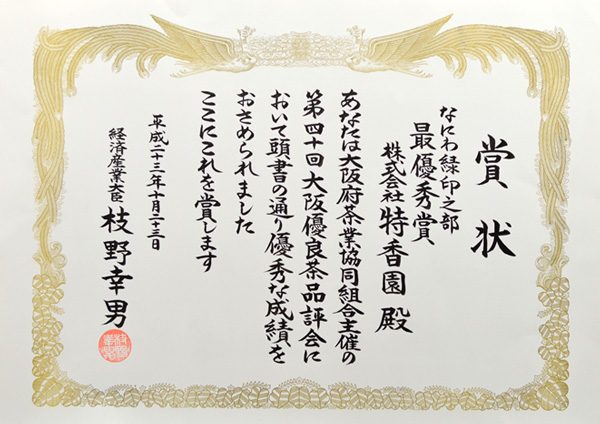 賞状
なにわ緑印之部
最優秀賞
株式会社特香園殿
あなたは大阪府茶業協同組合主催の
第四十回大阪優良茶品評会に
おいて頭書の通り優秀な成績を
おさめられました
ここにこれを賞します
平成二十三年十月二十三日
経済産業大臣枝野幸男